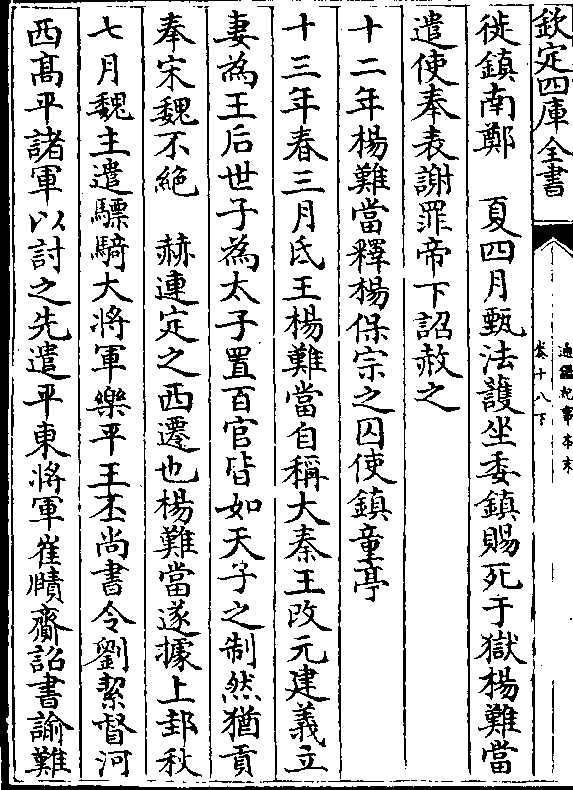 欽定四庫全書
通鑑紀事本末
卷十八下
徙鎮南鄭　夏四月甄法護坐委鎮賜死于獄楊難當
遣使奉表謝罪帝下詔赦之
十二年楊難當釋楊保宗之囚使鎮童亭
十三年春三月氐王楊難當自稱大秦王改元建義立
妻為王后世子為太子置百官皆如天子之制然猶貢
奉宋魏不絶　赫連定之西遷也楊難當遂據上邽秋
七月魏主遣驃騎大將軍樂平王丕尚書令劉絜督河
西高平諸軍以討之先遣平東將軍崔賾齎詔書諭難